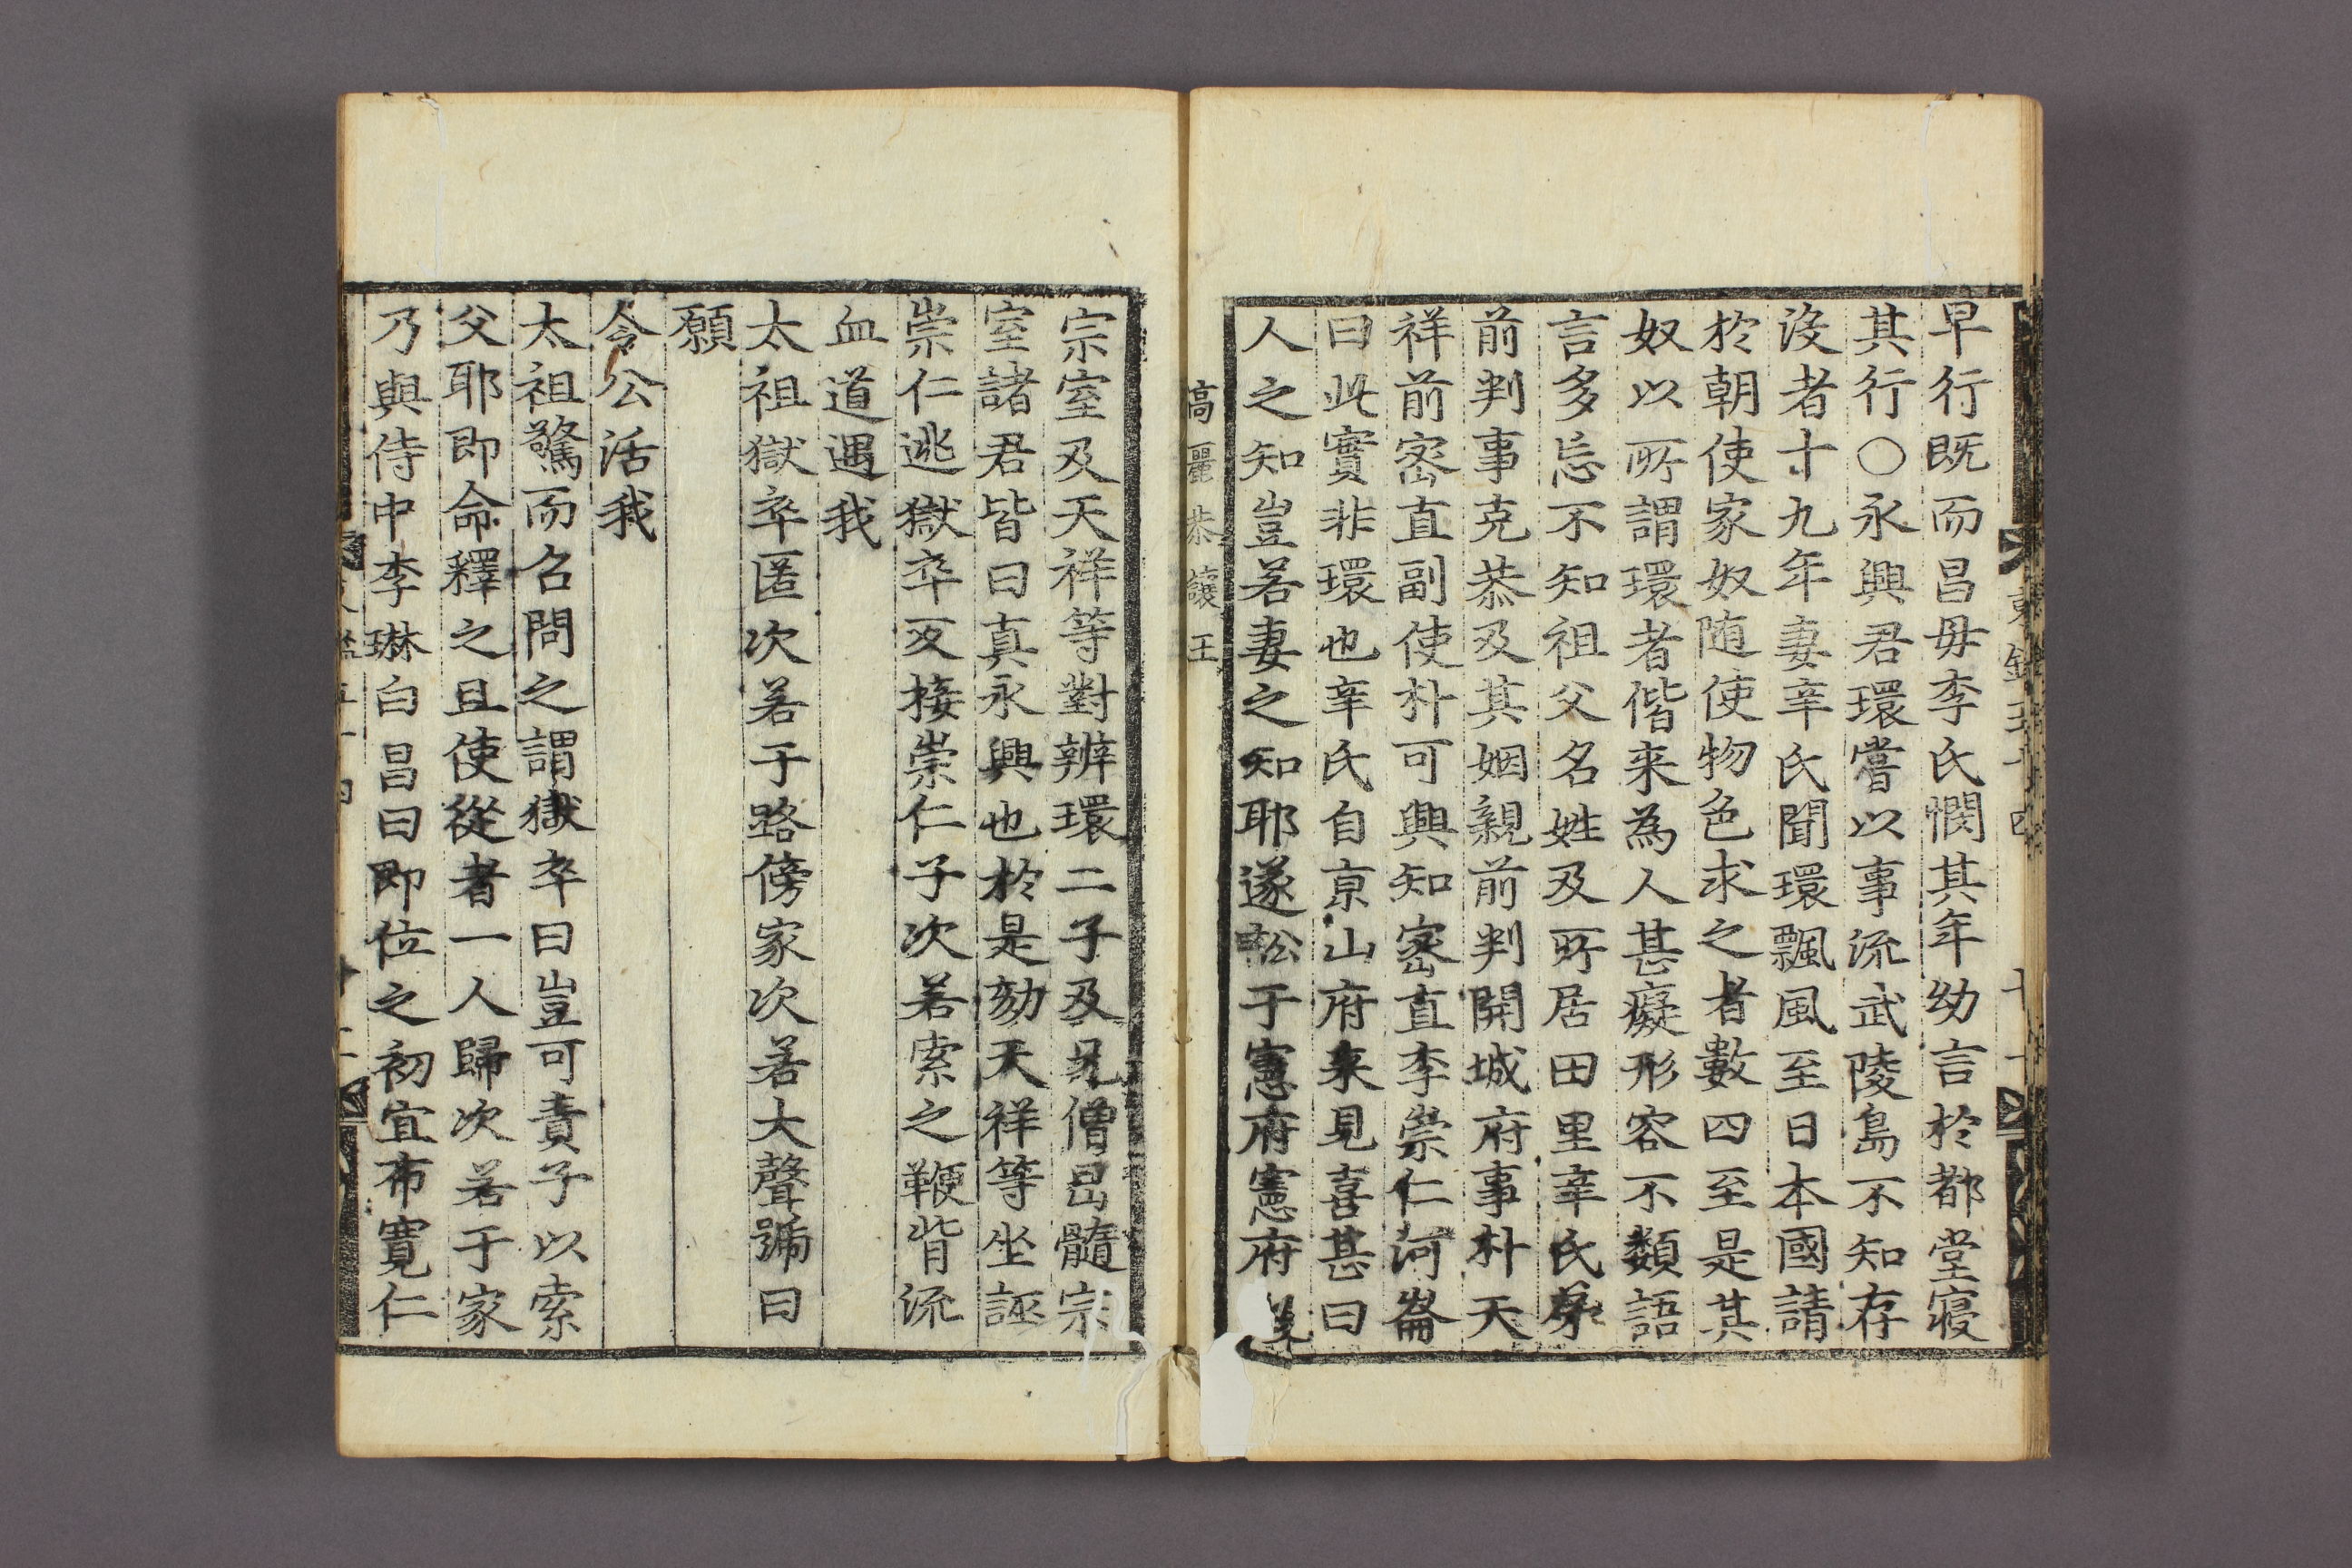 早行既而昌毋李氏憫其年幼言於都堂寢
其行○永興君環嘗以事流武陵島不知存
沒者十九年妻辛氏聞環飄風至日本國請
於朝使家奴随使物色求之者數四至是其
奴以所謂環者偕来為人甚癡形容不類語
言多忘不知祖父名姓及所居田里辛氏弟
前判事克恭及其姻親前判開城府事朴天
祥前密直副使朴可興知密直李崇仁河崙
曰此實非環也辛氏自京山府来見喜甚曰
人之知豈若妻之知耶遂訟于憲府憲府
高麗恭讓王
宗室及天祥等對辨環二子及兄僧髓宗
室諸君皆曰真永興也於是劾天祥等坐誣
崇仁逃獄卒又接崇仁子次若索之鞭背流
血道遇我
太祖獄卒匿次若于路傍家次若大聲號曰
願
令公活我
太祖驚而名問之謂獄卒曰豈可責子以索
父耶即命釋之且使從者一人歸次若于家
乃與侍中李琳白昌曰即位之初宜布寬仁